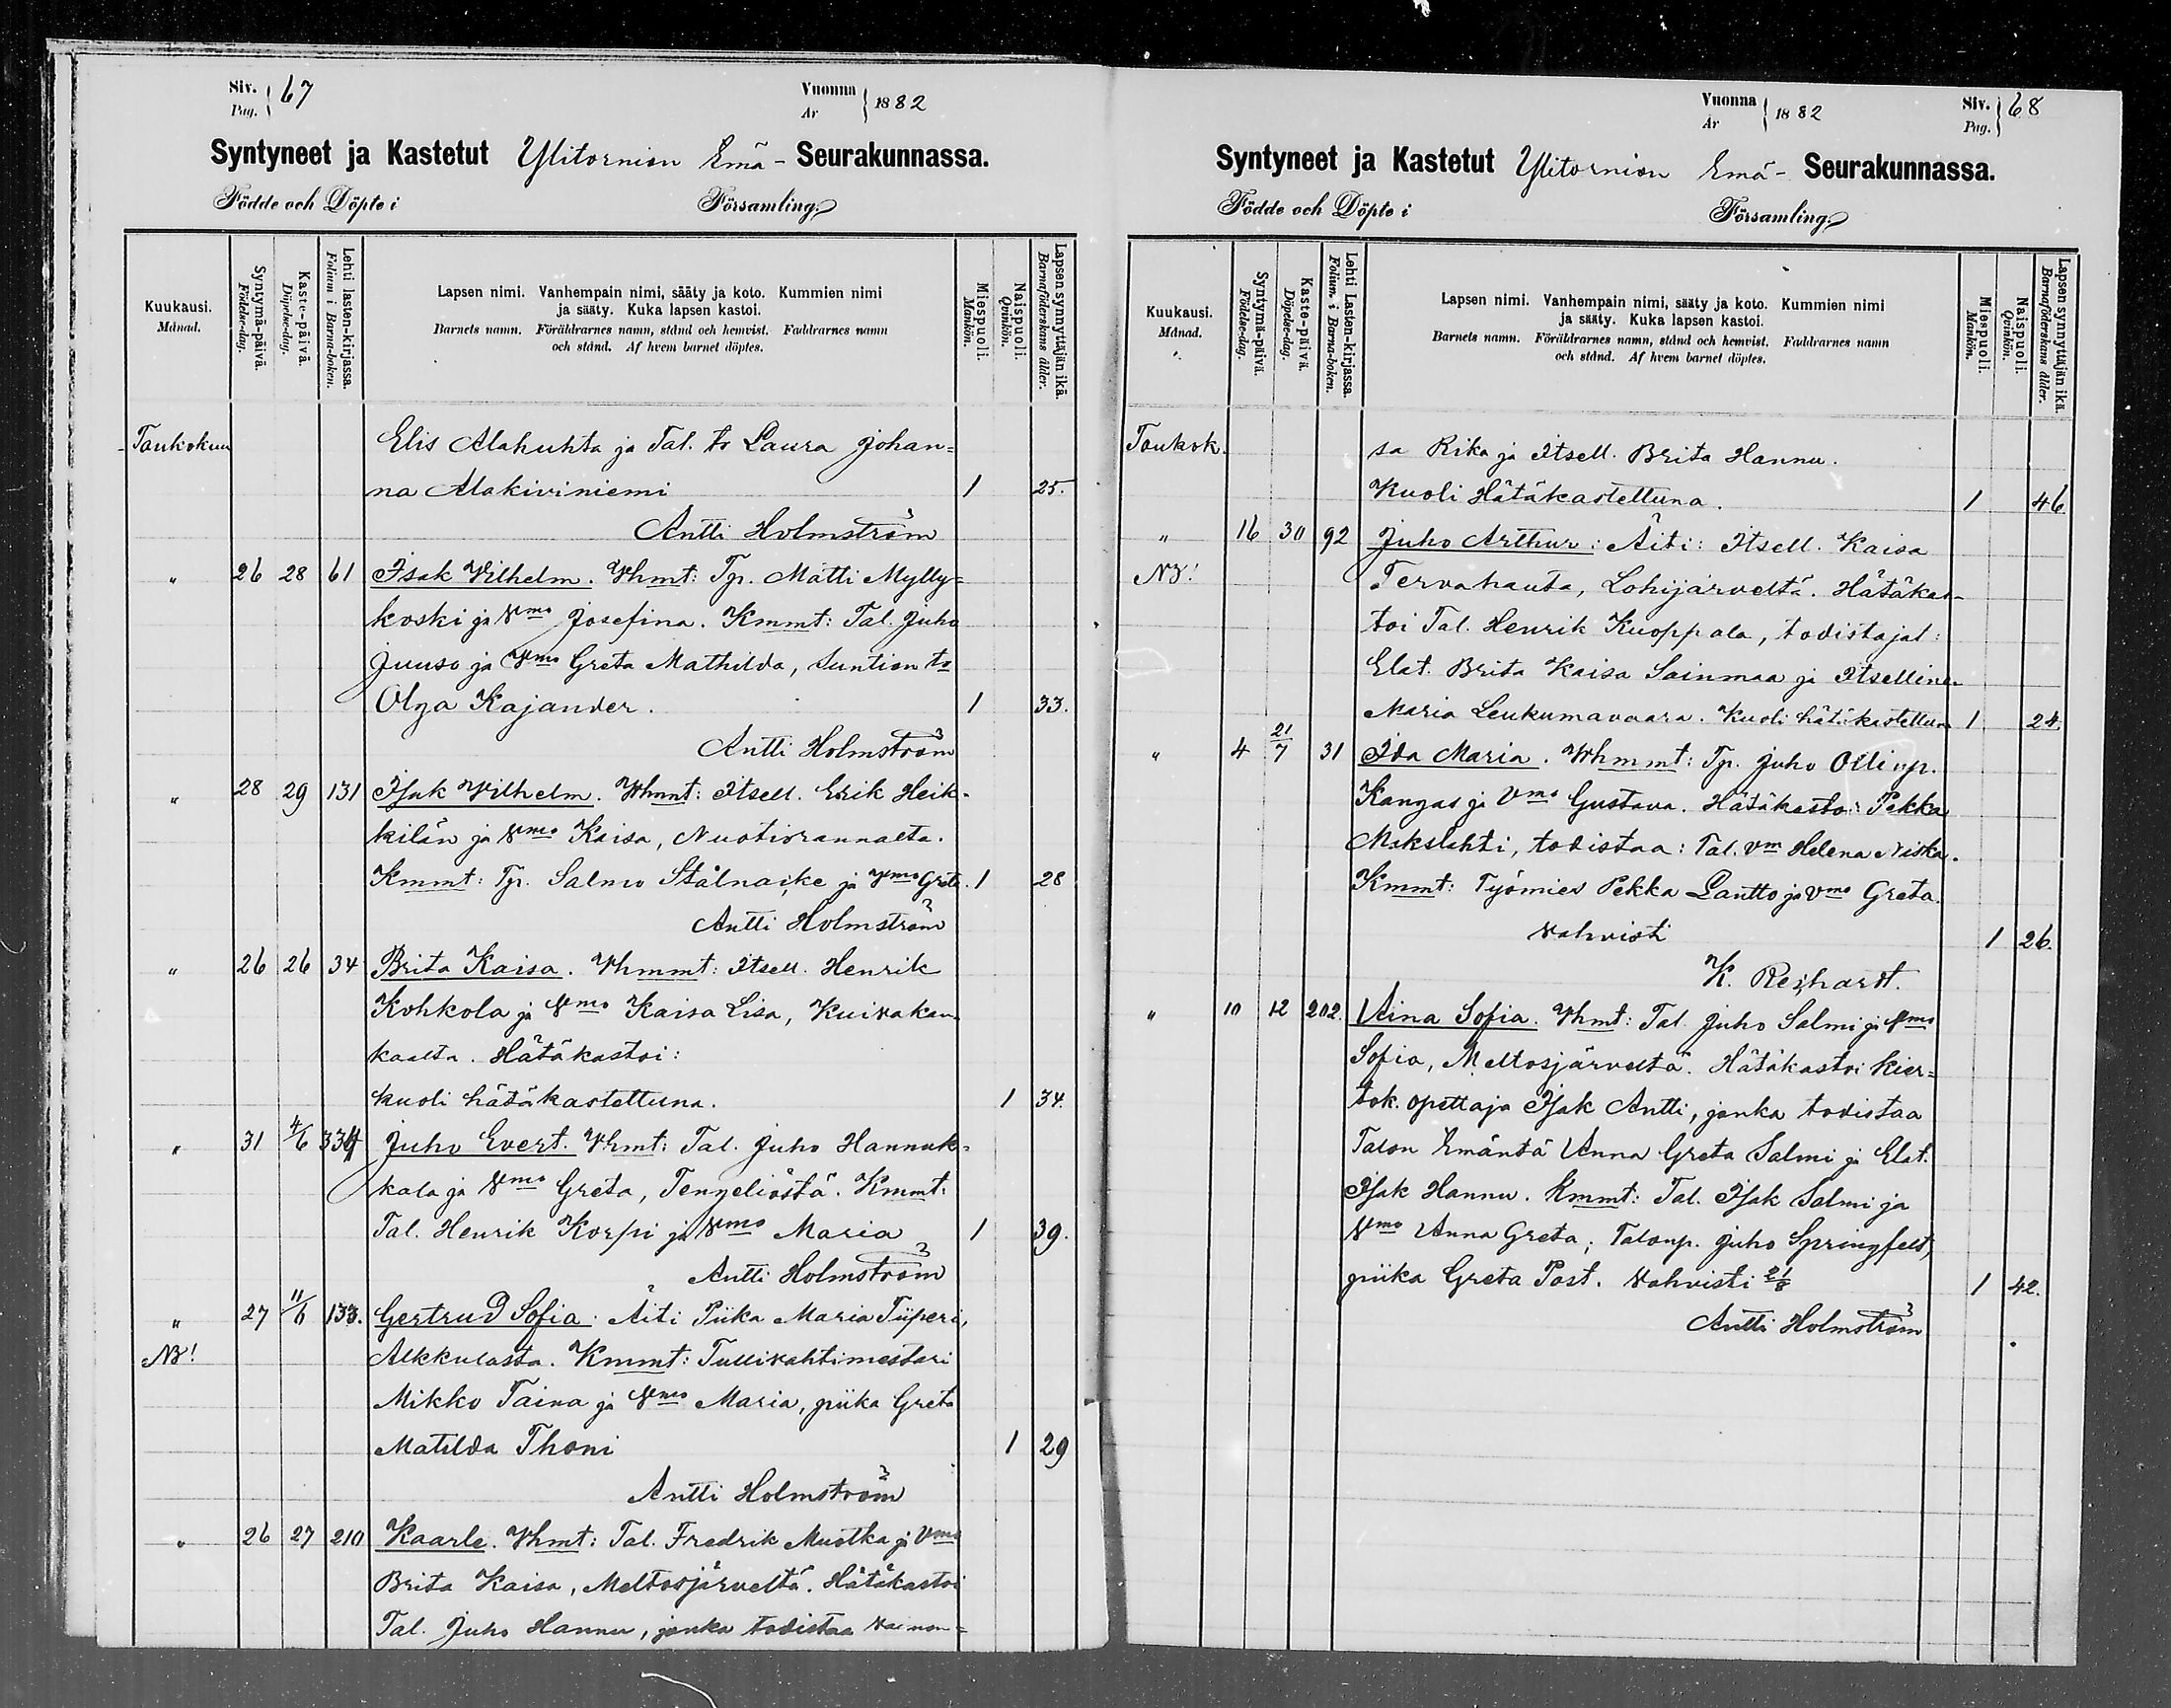 Siv.
Pag. } 67
Vuonna
År } 1882
Syntyneet ja Kastetut Ylitornion Emä- Seurakunnassa.
Födde och Döpte i Församling.
Kuukausi.
Månad.
Syntymä-päivä.
Födelse-dag.
Kaste-päivä.
Döpelse-dag.
Lehti lasten-kirjassa.
Folium i Barna-boken.
Lapsen nimi. Vanhempain nimi, sääty ja koto. Kummien nimi
ja sääty. Kuka lapsen kastoi.
Barnets namn. Föräldrarnes namn, stånd och hemvist. Faddrarnes namn
och stånd. Af hvem barnet döptes.
Miespuoli.
Mankön.
Naispuoli.
Qvinkön.
Lapsen synnyttäjän ikä.
Barnaföderskans ålder.
Toukokuu Elis Alahuhta ja Tal. tr Laura Johan=
na Alakiviniemi 1 25.
Antti Holmström
" 26 28 61 Isak Vilhelm. Vhmt: Tp. Matti Mylly=
koski ja Vmo Josefina. Kmmt: Tal. Juho
Juuso ja Vmo Greta Mathilda, Suntion tr
Olga Kajander. 1 33.
Antti Holmström
" 28 29 131 Isak Vilhelm. Vhmt: Itsell. Erik Heik-
kilän ja Vmo Kaisa, Nuotiorannalta.
Kmmt: Tp. Salmo Stålnacke ja Vmo Greta. 1 28
Antti Holmström
" 26 26 34 Brita Kaisa. Vhmmt: Itsell. Henrik
Kohkola ja Vmo Kaisa Lisa, Kuivakan-
kaalta. Hätäkastoi:
kuoli hätäkastettuna. 1 34.
" 31 4/6 334 Juho Evert. Vhmt: Tal. Juho Hannuk-
kala ja Vmo Greta, Tengeliöstä. Kmmt:
Tal. Henrik Korpi ja Vmo Maria 1 39.
Antti Holmström
" 27 11/6 133. Gertrud Sofia. Äiti Piika Maria Tiiperi,
NB! Alkkulasta. Kmmt: Tullivahtimestari
Mikko Taina ja Vmo Maria, piika Greta
Matilda Thoni 1 29
Antti Holmström
" 26 27 210 Kaarle. Vhmt: Tal. Fredrik Muotka ja Vmo
Brita Kaisa, Meltosjärveltä. Hätäkastoi
Tal. Juho Hannu, jonka todistaa Vaimon=
Vuonna
År } 1882
Siv.
Pag. } 68
Syntyneet ja Kastetut Ylitornion Emä- Seurakunnassa.
Födde och Döpte i Församling.
Kuukausi.
Månad.
Syntymä-päivä.
Födelse-dag.
Kaste-päivä.
Döpelse-dag.
Lehti Lasten-kirjassa.
Folium i Barna-boken.
Lapsen nimi. Vanhempain nimi, sääty ja koto. Kummien nimi
ja sääty. Kuka lapsen kastoi.
Barnets namn. Föräldrarnes namn, stånd och hemvist. Faddrarnes namn
och stånd. Af hvem barnet döptes.
Miespuoli.
Mankön.
Naispuoli.
Qvinkön.
Lapsen synnyttäjän ikä.
Barnaföderskans ålder.
Toukok. sa Rika ja Itsell. Brita Hannu.
Kuoli Hätäkastettuna. 1 46.
" 16 30 92 Juho Arthur: Äiti: Itsell. Kaisa
NB! Tervahauta, Lohijärveltä. Hätäkas-
toi Tal. Henrik Kuoppala, todistajat:
Elat. Brita Kaisa Sainmaa ja Itsellinen
Maria Leukumavaara. Kuoli hätäkastettuna 1 24.
" 4 21/7 31 Ida Maria. Vhmmt: Tp. Juho Ollinp.
Kangas ja Vmo Gustava. Hätäkastoi: Pekka
Makslahti, todistaa: Tal. vm Helena Niska.
Kmmt: Työmies Pekka Lantto ja Vmo Greta.
Vahvisti 1 26.
K. Reinhardt.
" 10 12 202. Aina Sofia. Vhmt: Tal. Juho Salmi ja Vmo
Sofia, Meltosjärveltä. Hätäkastoi Kier=
tok. opettaja Isak Antti, jonka todistaa
Talon Emäntä Anna Greta Salmi ja Elat.
Isak Hannu. Kmmt: Tal. Isak Salmi ja
Vmo Anna Greta; Talonp. Juho Springfelt,
piika Greta Post. Vahvisti 21/8 1 42.
Antti Holmström